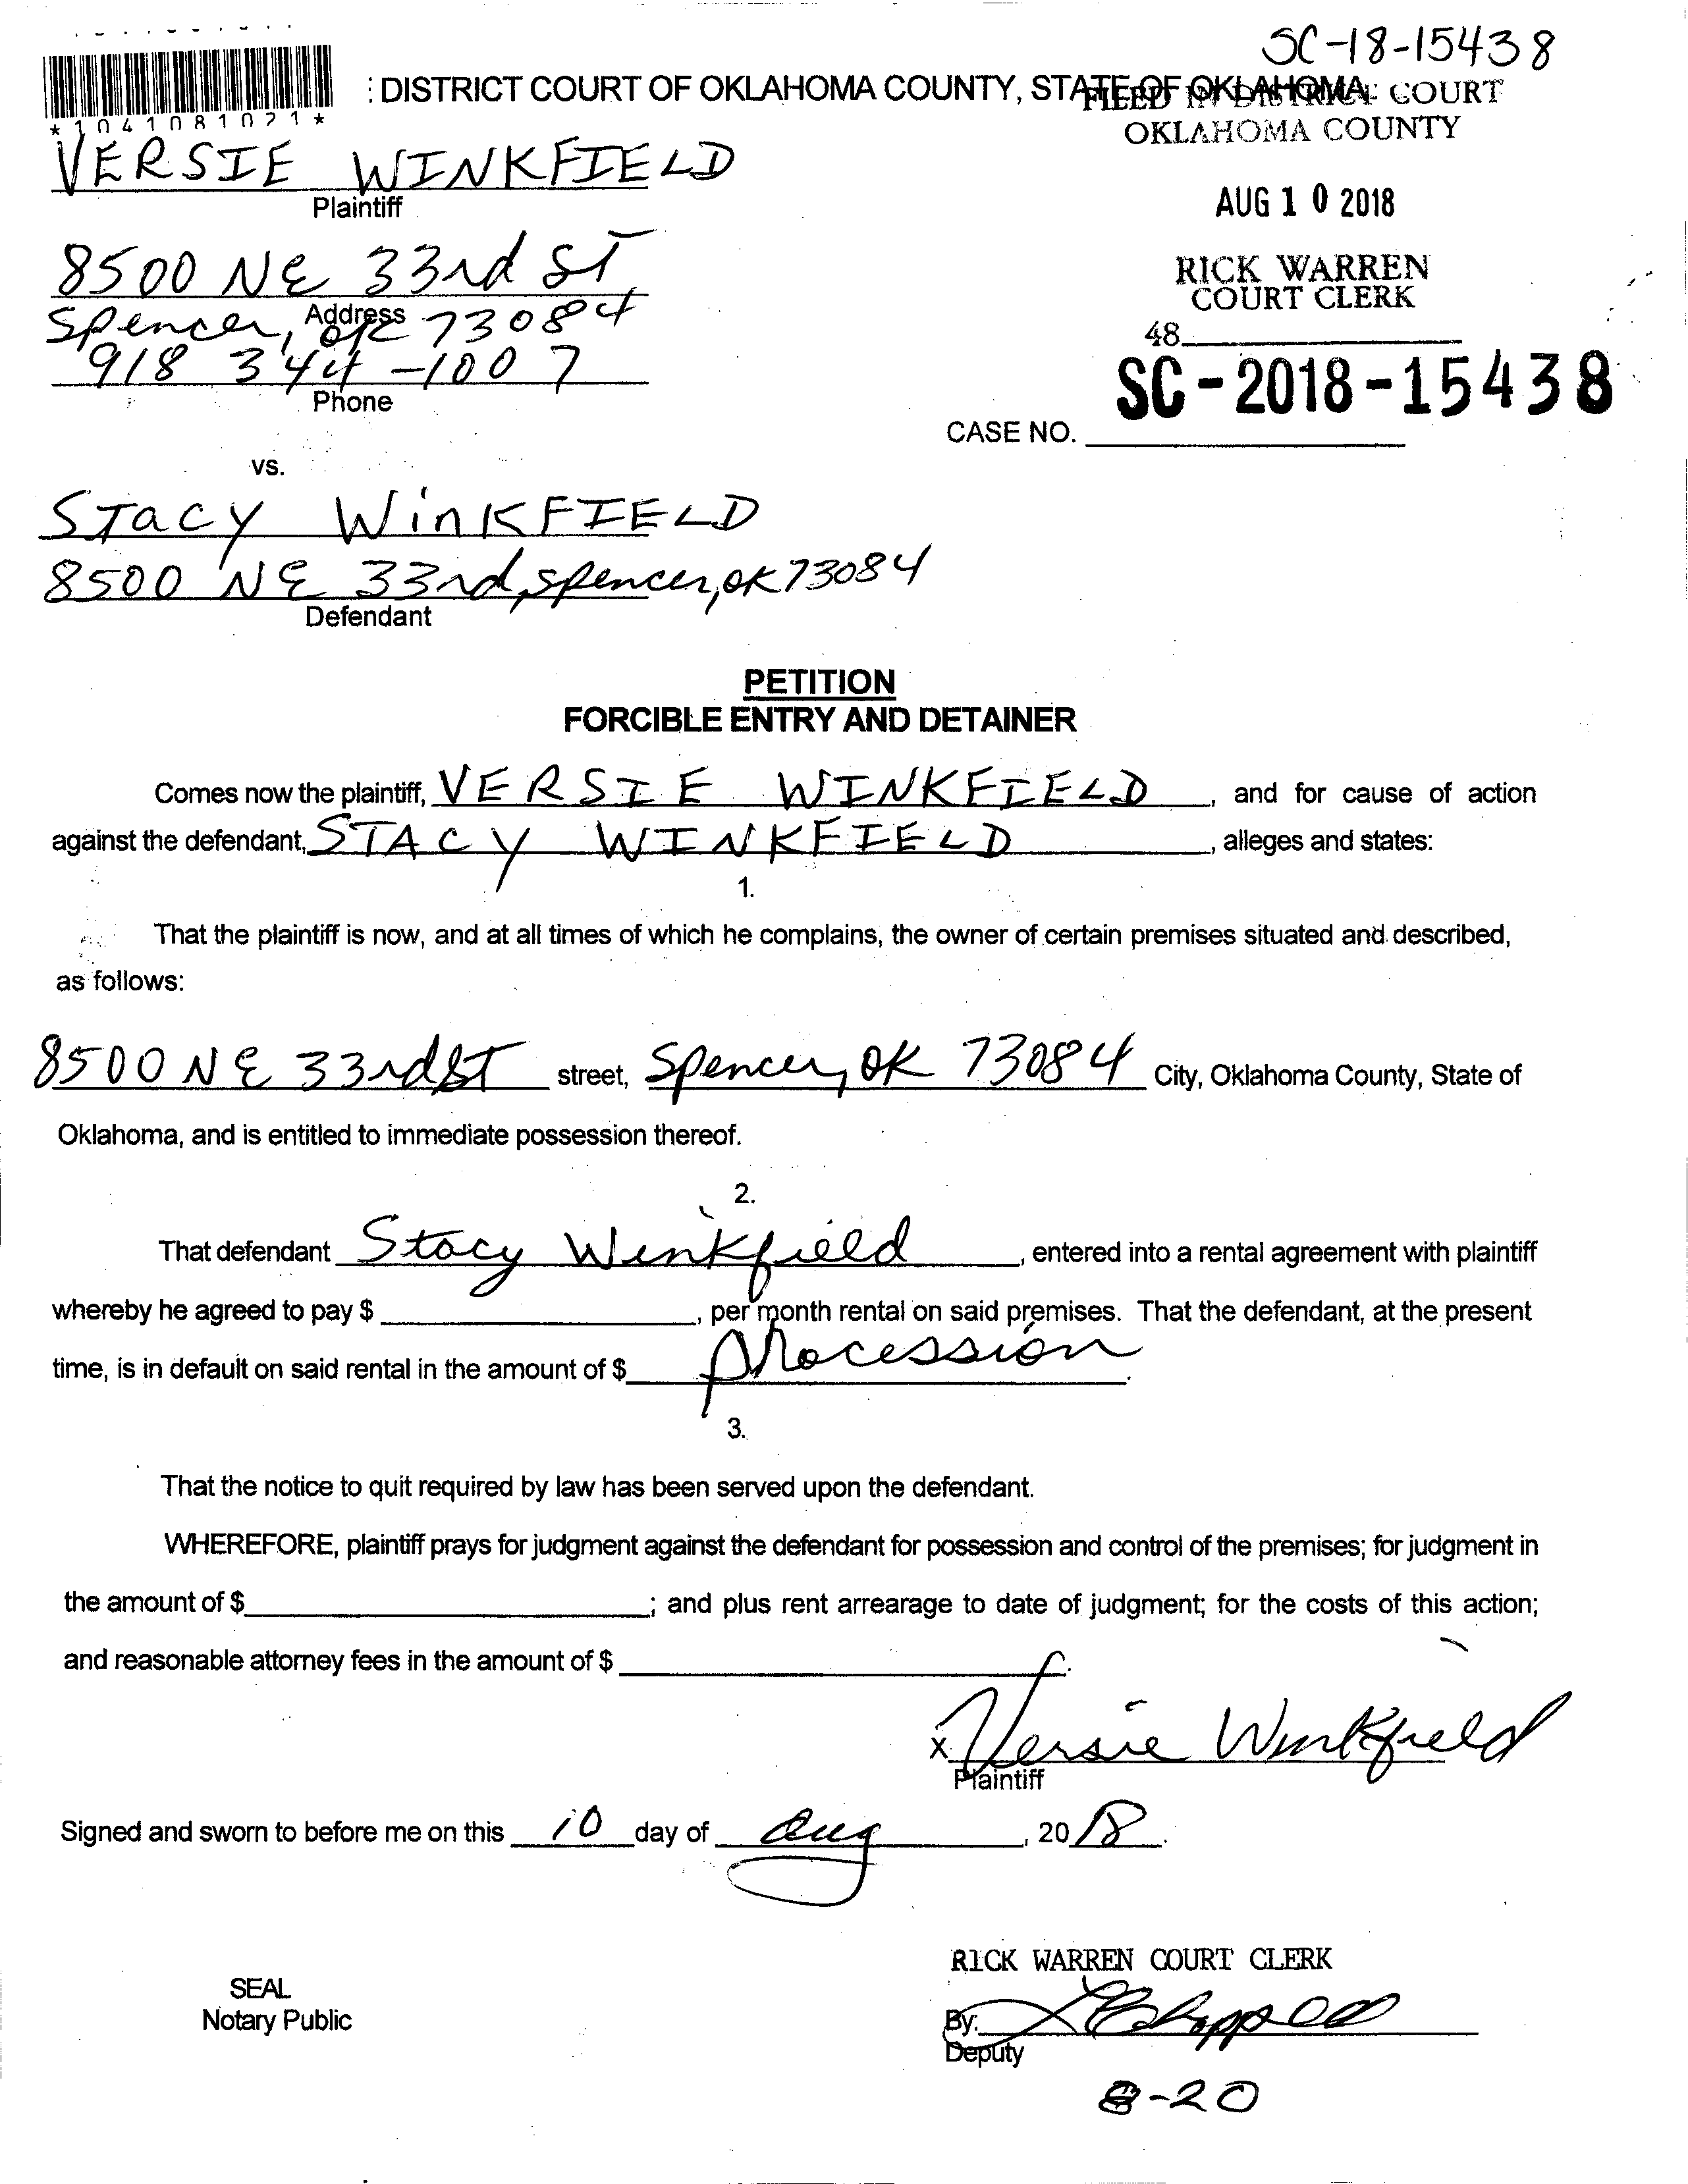 SC-18-15438
: DISTRICT COURT OF OKLAHOMA COUNTY, STATE OF OKLAHOMA
FILED IN DISTRICT COURT
OKLAHOMA COUNTY
*1041081021*
VERSIE WINKFIELD
Plaintiff
AUG 10 2018
8500 NE 33rd ST
Address
Spencer, OK 73084
918 344-1007
Phone
RICK WARREN
COURT CLERK
48
SC-2018-15438
CASE NO.
vs.
STACY WINKFIELD
8500 NE 33rd, Spencer, OK 73084
Defendant
PETITION
FORCIBLE ENTRY AND DETAINER
Comes now the plaintiff, VERSIE WINKFIELD, and for cause of action
against the defendant, STACY WINKFIELD, alleges and states:
1.
That the plaintiff is now, and at all times of which he complains, the owner of certain premises situated and described,
as follows:
8500 NE 33rd ST street, Spencer, OK 73084 City, Oklahoma County, State of
Oklahoma, and is entitled to immediate possession thereof.
2.
That defendant Stacy Winkfield, entered into a rental agreement with plaintiff
whereby he agreed to pay $, per month rental on said premises. That the defendant, at the present
time, is in default on said rental in the amount of $ Procession.
3.
That the notice to quit required by law has been served upon the defendant.
WHEREFORE, plaintiff prays for judgment against the defendant for possession and control of the premises; for judgment in
the amount of $; and plus rent arrearage to date of judgment; for the costs of this action;
and reasonable attorney fees in the amount of $.
x Versie Winkfield
Plaintiff
Signed and sworn to before me on this 10 day of Aug, 2018.
RICK WARREN COURT CLERK
SEAL
Notary Public
By:
Deputy
8-20